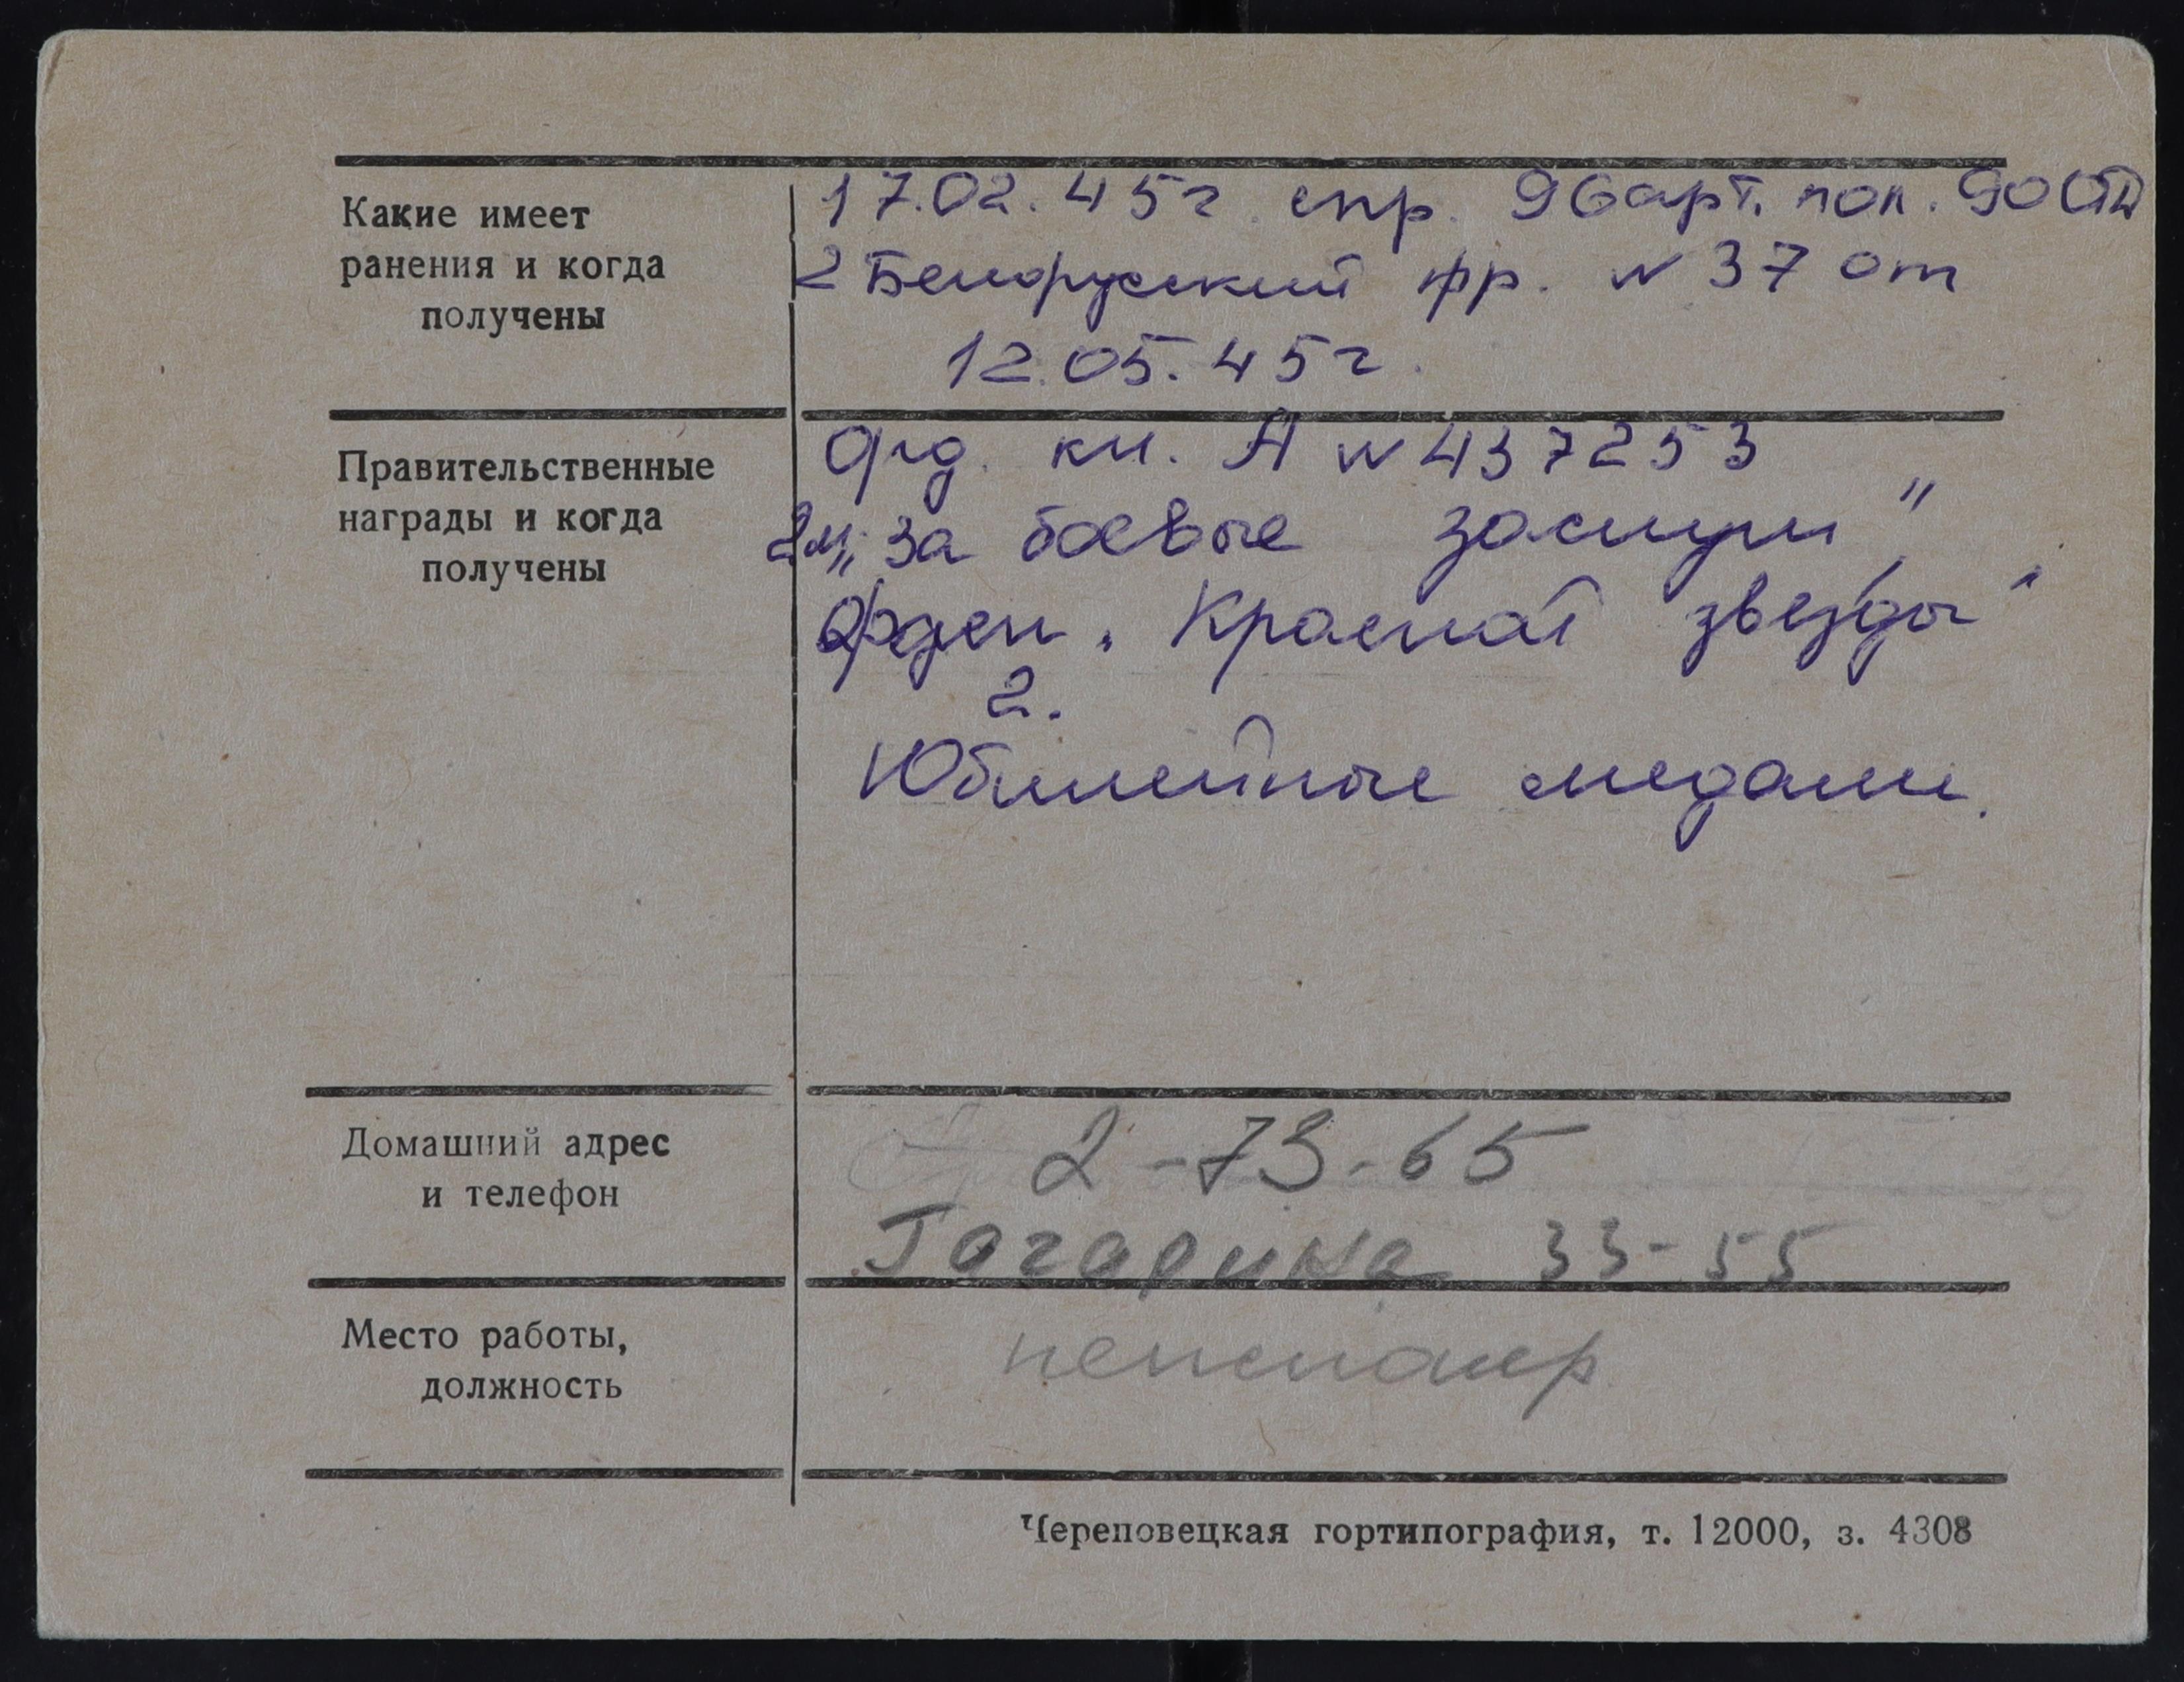 Какие имеет
ранения и когда
получены
17.02.45г. спр. 96 арт. пол. 90 СД
2 Белорусский фр. № 37 от
12.05.45г.
Правительственные
награды и когда
получены
Орд. кн. А № 437253
2 м „За боевые заслуги"
Орден „Красной звезды"
2.
Юбилейные медали.
Домашний адрес
и телефон
2-73-65
Гагарина 33-55
Место работы,
должность
пенсионер
Череповецкая гортипография, т. 12000, з. 4308